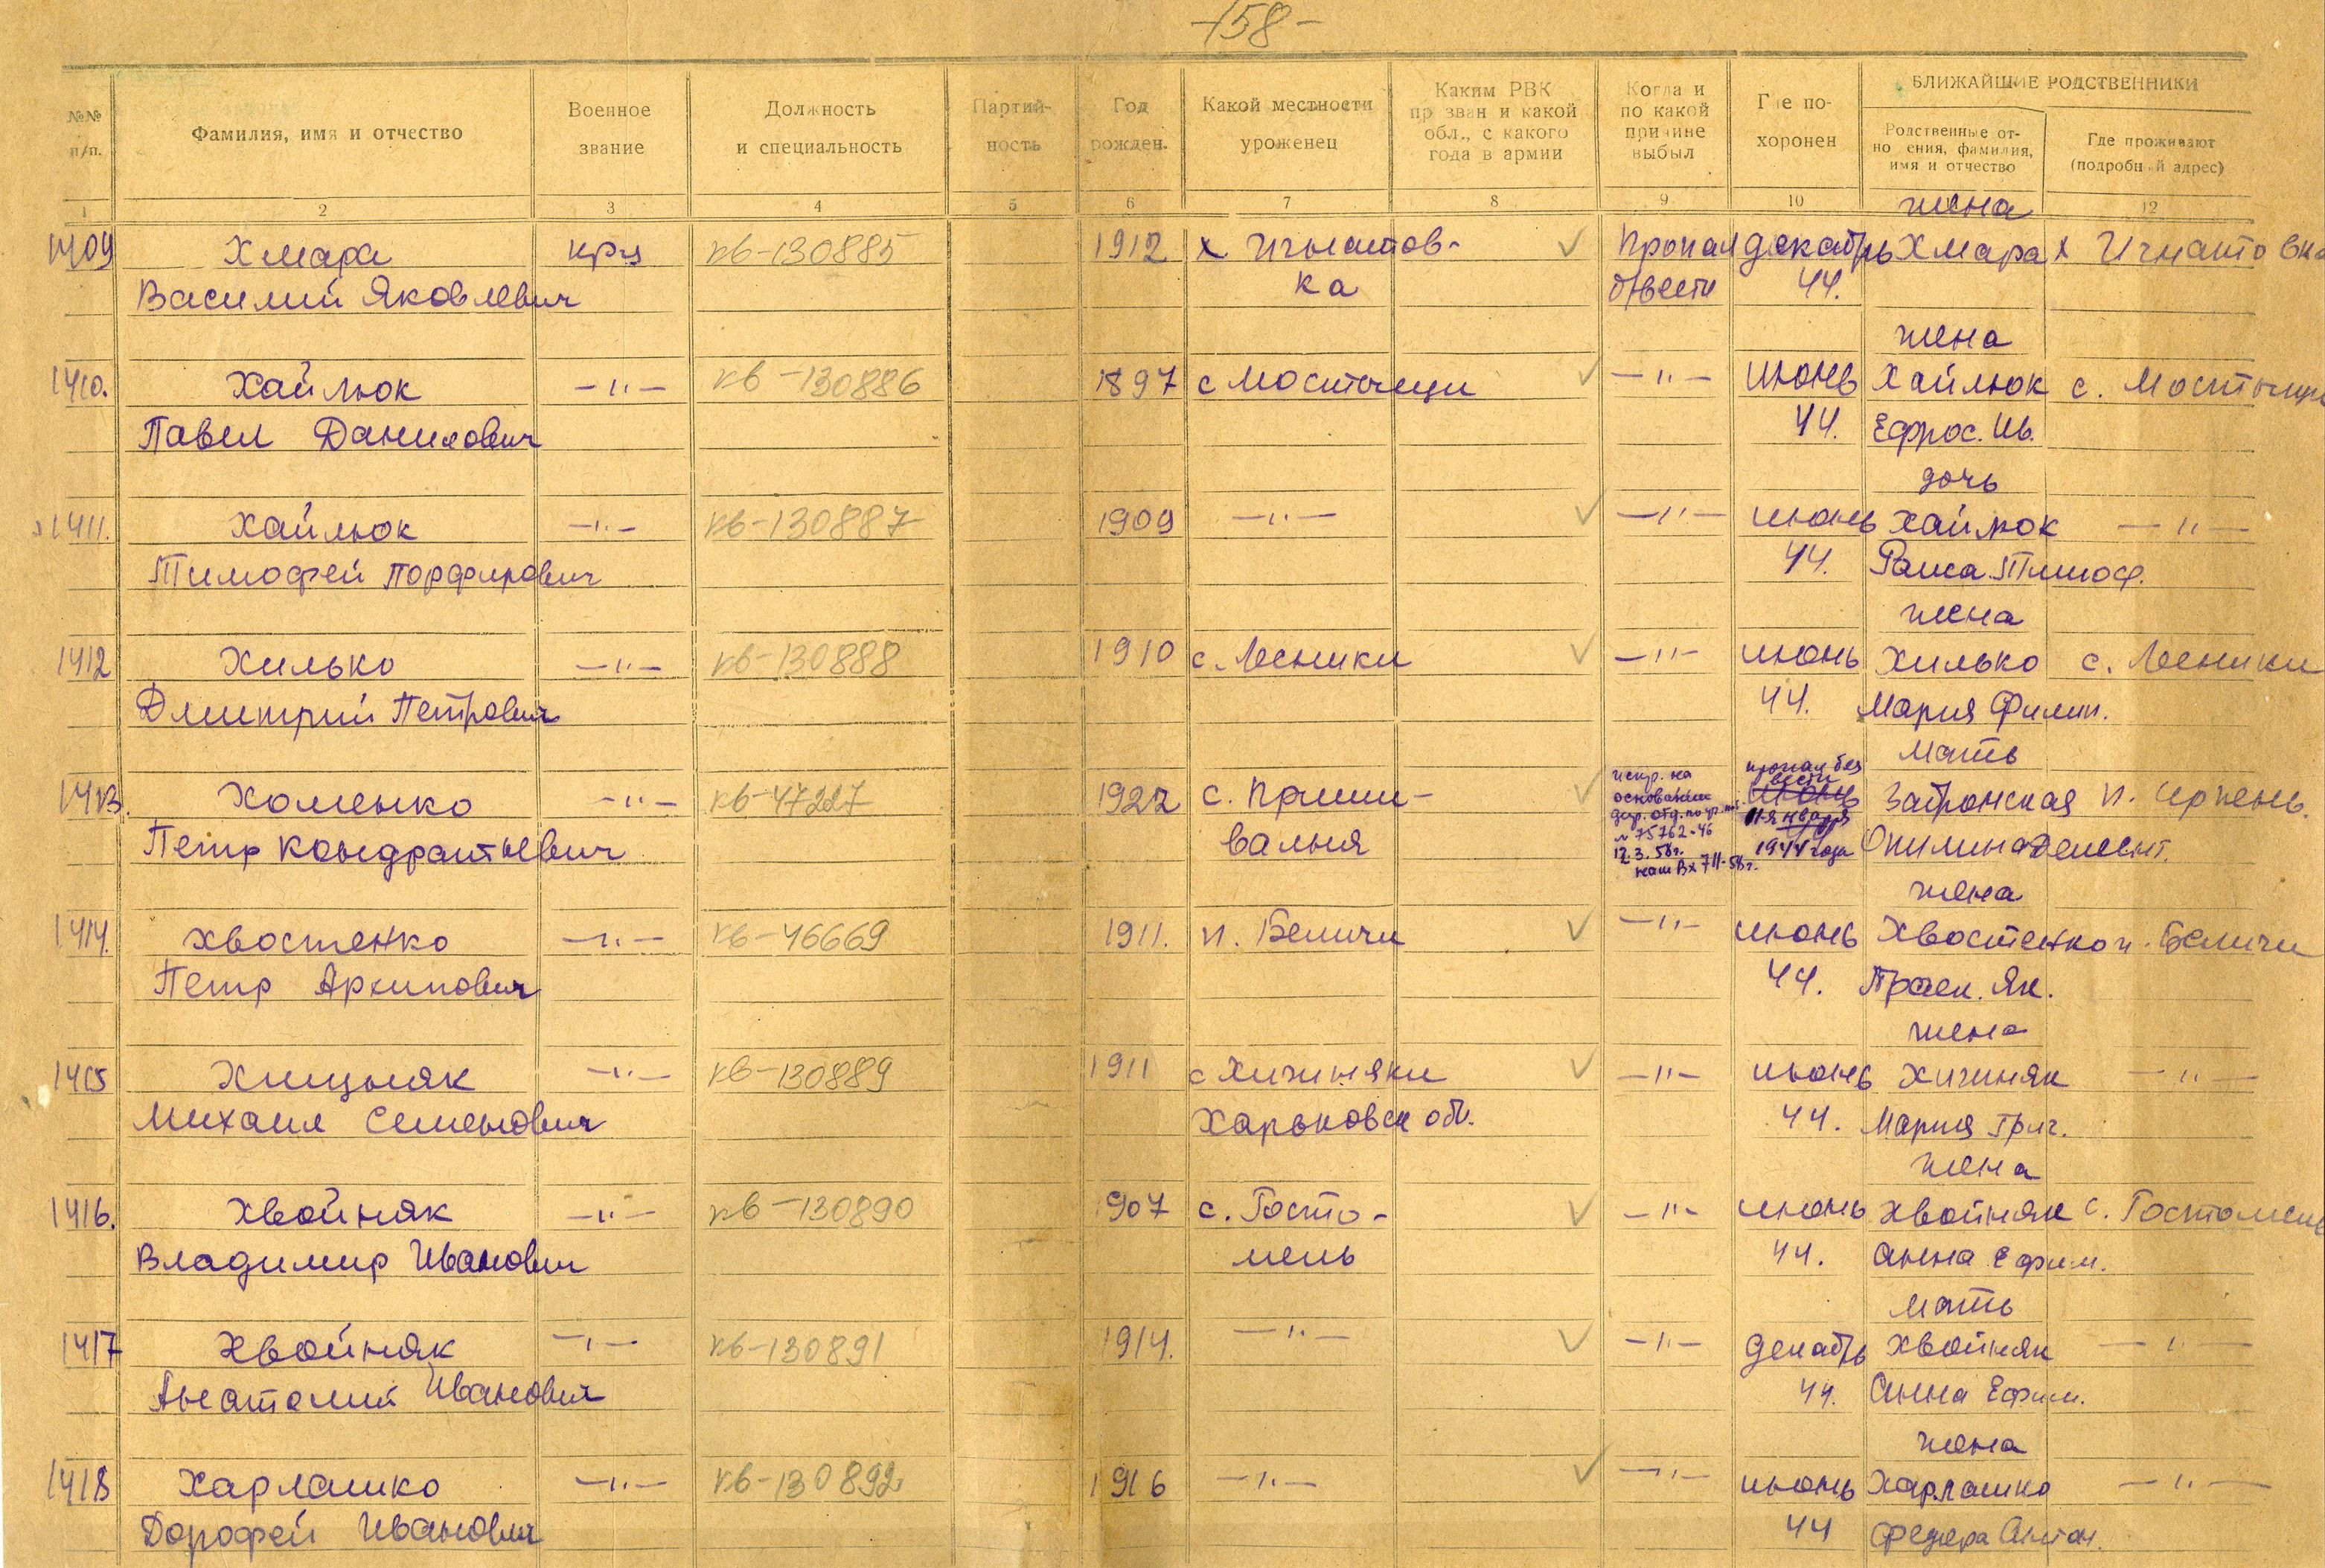 -158-
№№ п/п.
Фамилия, имя и отчество
Военное звание
Должность и специальность
Партий-ность
Год рожден.
Какой местности уроженец
Каким РВК пр зван и какой обл., с какого года в армии
Когда и по какой причине выбыл
Где по-хоронен
БЛИЖАЙШИЕ РОДСТВЕННИКИ
Родственные от-но ения, фамилия, имя и отчество
Где проживают (подробн й адрес)
1 2 3 4 5 6 7 8 9 10 12
жена
1409 Хмара крц кв-130885 1912 х Игнатов- ✓ Пропал декабрь Хмара х Игнатовка
Василий Яковлевич ка б/вести 44.
жена
1410. Хайлюк —"— кв-130886 1897 с Мостыщи ✓ —"— июнь Хайлюк с. Мостыщи
Павел Данилович 44. Ефрос. Ив.
дочь
1411. Хайлюк —"— кв-130887 1909 —"— ✓ —"— июнь Хайлюк —"—
Тимофей Порфирович 44. Раиса Тимоф.
жена
1412 Хилько —"— кв-130888 1910 с. Лесники ✓ —"— июнь Хилько с. Лесники
Дмитрий Петрович 44. Мария Филип.
мать
1413. Хоменко —"— кв-47227 1922 с. Приши- ✓ испр. на основании пропал без вести июнь Затонская п. Ирпень.
Петр Кондратьевич вальня № 75762-46 12.3.58г. наш Вх 711-58г. января 1944 года
жена
1414. Хвостенко —"— кв-46669 1911. п. Беличи ✓ —"— июнь Хвостенко п. Беличи
Петр Архипович 44. Праск. Як.
жена
1415 Хицняк —"— кв-130889 1911 с Хичняки ✓ —"— июнь Хичиняк —"—
Михаил Семенович Харьковск обл. 44. Мария Григ.
жена
1416. Хвойняк —"— кв-130890 1907 с. Госто- ✓ —"— июнь Хвойняк с. Гостомель
Владимир Иванович мель 44. Анна Ефим.
мать
1417 Хвойняк —"— кв-130891 1914. —"— ✓ —"— декабрь Хвойняк —"—
Анатолий Иванович 44. Анна Ефим.
жена
1418 Харлашко —"— кв-130892 1916 —"— ✓ —"— июнь Харлашко —"—
Дорофей Иванович 44 Федора Антон.